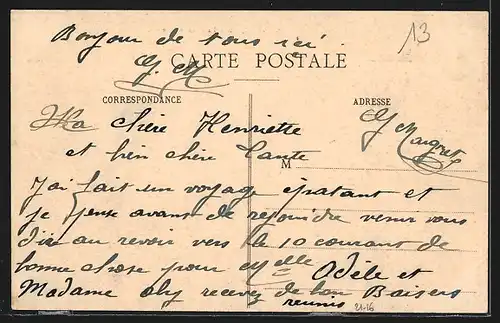 Bonjour de tous ici
13
CARTE POSTALE
CORRESPONDANCE
ADRESSE
Ma chère Henriette
et bien chère Tante
M
J'ai fait un voyage épatant et
je pense avant de rejoindre venir vous
dire au revoir vers le 10 courant de
bonne chose pour Melle Odèle et
Madame recevez de bon Baisers
reunis
21-16